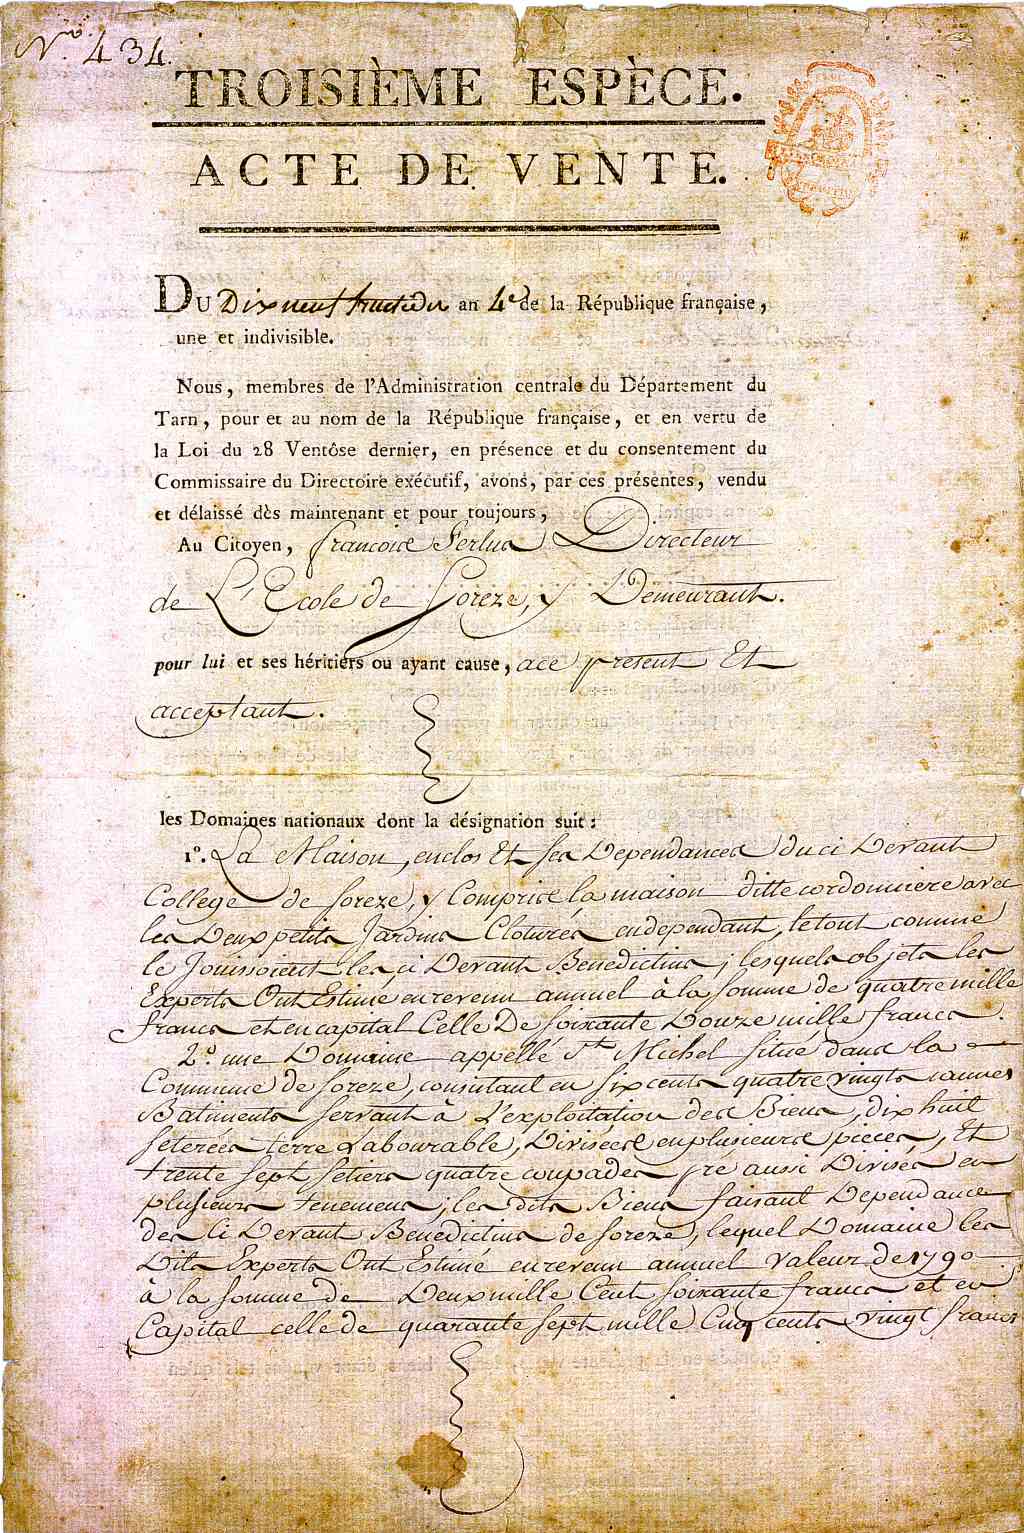 N.° 434.
TROISIÈME ESPÈCE.
ACTE DE VENTE.
DU Dix neuf fructidor an 4e de la République française,
une et indivisible.
Nous, membres de l'Administration centrale du Département du
Tarn, pour et au nom de la République française, et en vertu de
la Loi du 28 Ventôse dernier, en présence et du consentement du
Commissaire du Directoire exécutif, avons, par ces présentes, vendu
et délaissé dès maintenant et pour toujours,
Au Citoyen, françois ferlus Directeur
de L'Ecole de Soreze, y Demeurant.
pour lui et ses héritiers ou ayant cause, ace present Et
acceptant.
les Domaines nationaux dont la désignation suit :
1°. La Maison, enclos Et ses Dependances du ci Devant
College de soreze, y Compris la maison ditte cordonniere avec
les Deux petits Jardins Cloturés en dependant, le tout comme
le Jouissoient les ci Devant Benedictins; lesquels objets les
Experts Ont Estimé en revenu annuel à la somme de quatre mille
francs et en capital Celle De soixante Douze mille francs.
2.° une Domaine appellé St. Michel situé dans la
Commune de soreze, consistant en six cents quatre vingts cannes
Batiments servant à L'exploitation des Biens, dix huit
seterées terre Labourable, Divisées en plusieurs pieces, Et
trente sept setiers quatre coupades pré aussi Divisés en
plusieurs tenemens; les dits Biens faisant Dependance
des Ci Devant Benedictins de soreze, lequel Domaine les
Dits Experts Ont Estimé en revenu annuel valeur de 1790
à la somme de Deux mille Cent soixante francs et en
Capital celle de quarante sept mille Cinq cents vingt francs